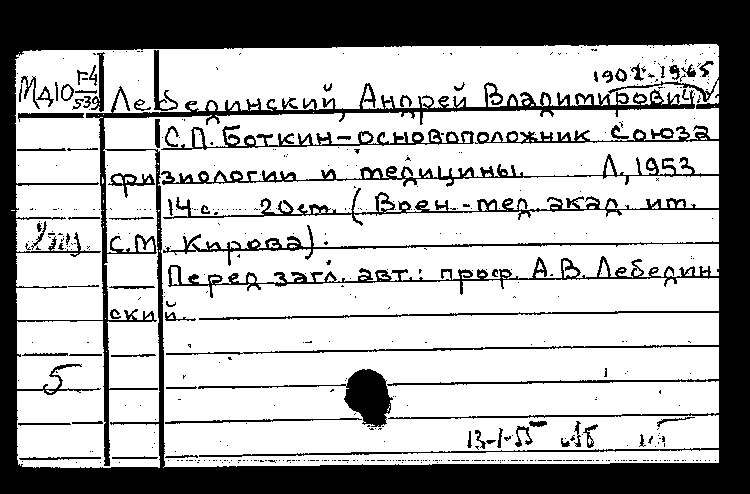 1902-1965
МД10 Г-4/539 Лебединский, Андрей Владимирович
С.П. Боткин-основоположник союза
физиологии и медицины. Л., 1953
14 с. 20 см. (Воен.-мед. акад. им.
С.М. Кирова).
Перед загл. авт.: проф. А.В. Лебедин-
ский.
5
13-1-55